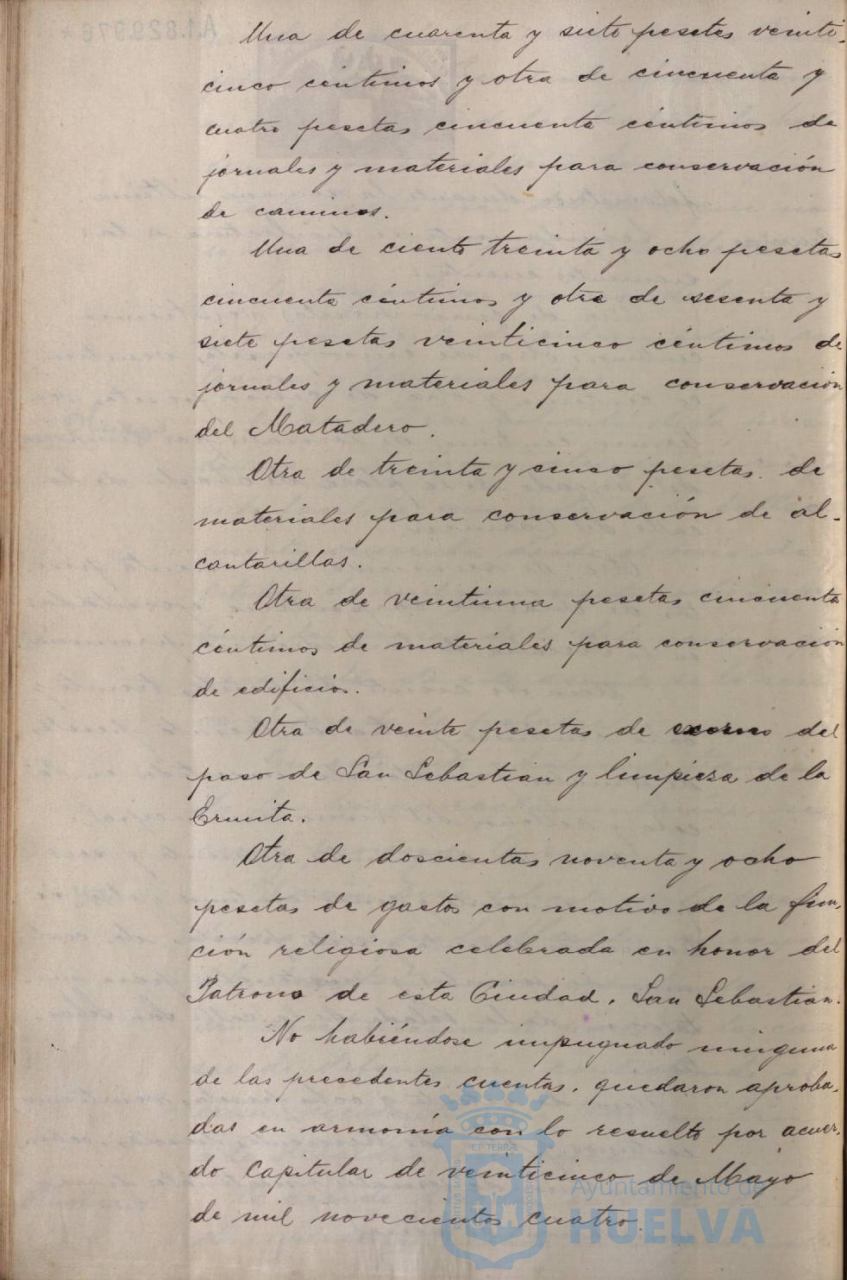 Una de cuarenta y siete pesetas veinti-
cinco céntimos y otra de cincuenta y
cuatro pesetas cincuenta céntimos de
jornales y materiales para conservación
de caminos.
Una de ciento treinta y ocho pesetas
cincuenta céntimos y otra de sesenta y
siete pesetas veinticinco céntimos de
jornales y materiales para conservación
del Matadero.
Otra de treinta y cinco pesetas de
materiales para conservación de al-
cantarillas.
Otra de veintiuna pesetas cincuenta
céntimos de materiales para conservación
de edificios.
Otra de veinte pesetas de exorno del
paso de San Sebastian y limpieza de la
Ermita.
Otra de doscientas noventa y ocho
pesetas de gastos con motivo de la fun-
ción religiosa celebrada en honor del
Patrono de esta Ciudad, San Sebastian.
No habiéndose impugnado ninguna
de las precedentes cuentas, quedaron aproba-
das en armonía con lo resuelto por acuer-
do Capitular de veinticinco de Mayo
de mil novecientos cuatro.
Ayuntamiento de
HUELVA